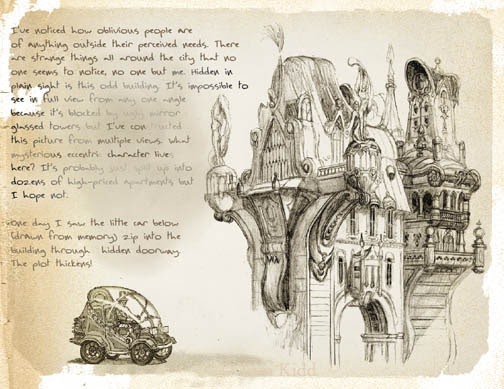 I've noticed how oblivious people are
of anything outside their perceived needs. There
are strange things all around the city that no
one seems to notice, no one but me. Hidden in
plain sight is this odd building. It's impossible to
see in full view from any one angle
because it's blocked by ugly mirror
glassed towers but I've con ructed
this picture from multiple views. What
mysterious eccentric character lives
here? It's probably just split up into
dozens of high-priced apartments but
I hope not.
One day I saw the little car below
(drawn from memory) zip into the
building through hidden doorway.
The plot thickens!
Kidd